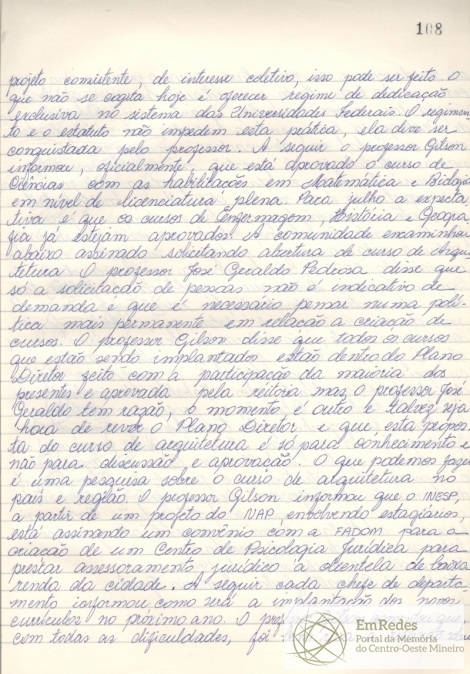 108
projeto consistente, de interesse coletivo, isso pode ser feito. O
que não se cogita hoje é oferecer regime de dedicação
exclusiva no sistema das Universidades Federais. O regimen
to e o estatuto não impedem esta prática, ela deve ser
conquistada pelo professor. A seguir o professor Gilson
informou, oficialmente, que está aprovado o curso de
Ciências com as habilitações em Matemática e Biologia
em nível de licenciatura plena. Para julho a expecta
tiva é que os cursos de Enfermagem, História e Geogra
fia já estejam aprovados. A comunidade encaminhou
abaixo assinado solicitando abertura de curso de Arqui
tetura. O professor José Geraldo Pedrosa disse que
só a solicitação de pessoas não é indicativo de
demanda e que é necessário pensar numa polí-
tica mais permanente em relação a criação de
cursos. O professor Gilson disse que todos os cursos
que estão sendo implantados estão dentro do Plano
Diretor feito com a participação da maioria dos
presentes e aprovada pela reitoria mas o professor José
Geraldo tem razão, o momento é outro e talvez seja
hora de rever o Plano Diretor e que, esta propos
ta do curso de arquitetura é só para conhecimento e
não para discussão e aprovação. O que podemos fazer
é uma pesquisa sobre o curso de arquitetura no
país e região. O professor Gilson informou que o INESP,
a partir de um projeto do NAP, envolvendo estagiários,
está assinando um convênio com a FADOM para a
criação de um Centro de Psicologia Jurídica para
prestar assessoramento jurídico a clientela de baixa
renda da cidade. A seguir cada chefe de departa-
mento informou como será a implantação dos novos
currículos no próximo ano. O que,
com todas as dificuldades, foi
EmRedes
Portal da Memória
do Centro-Oeste Mineiro